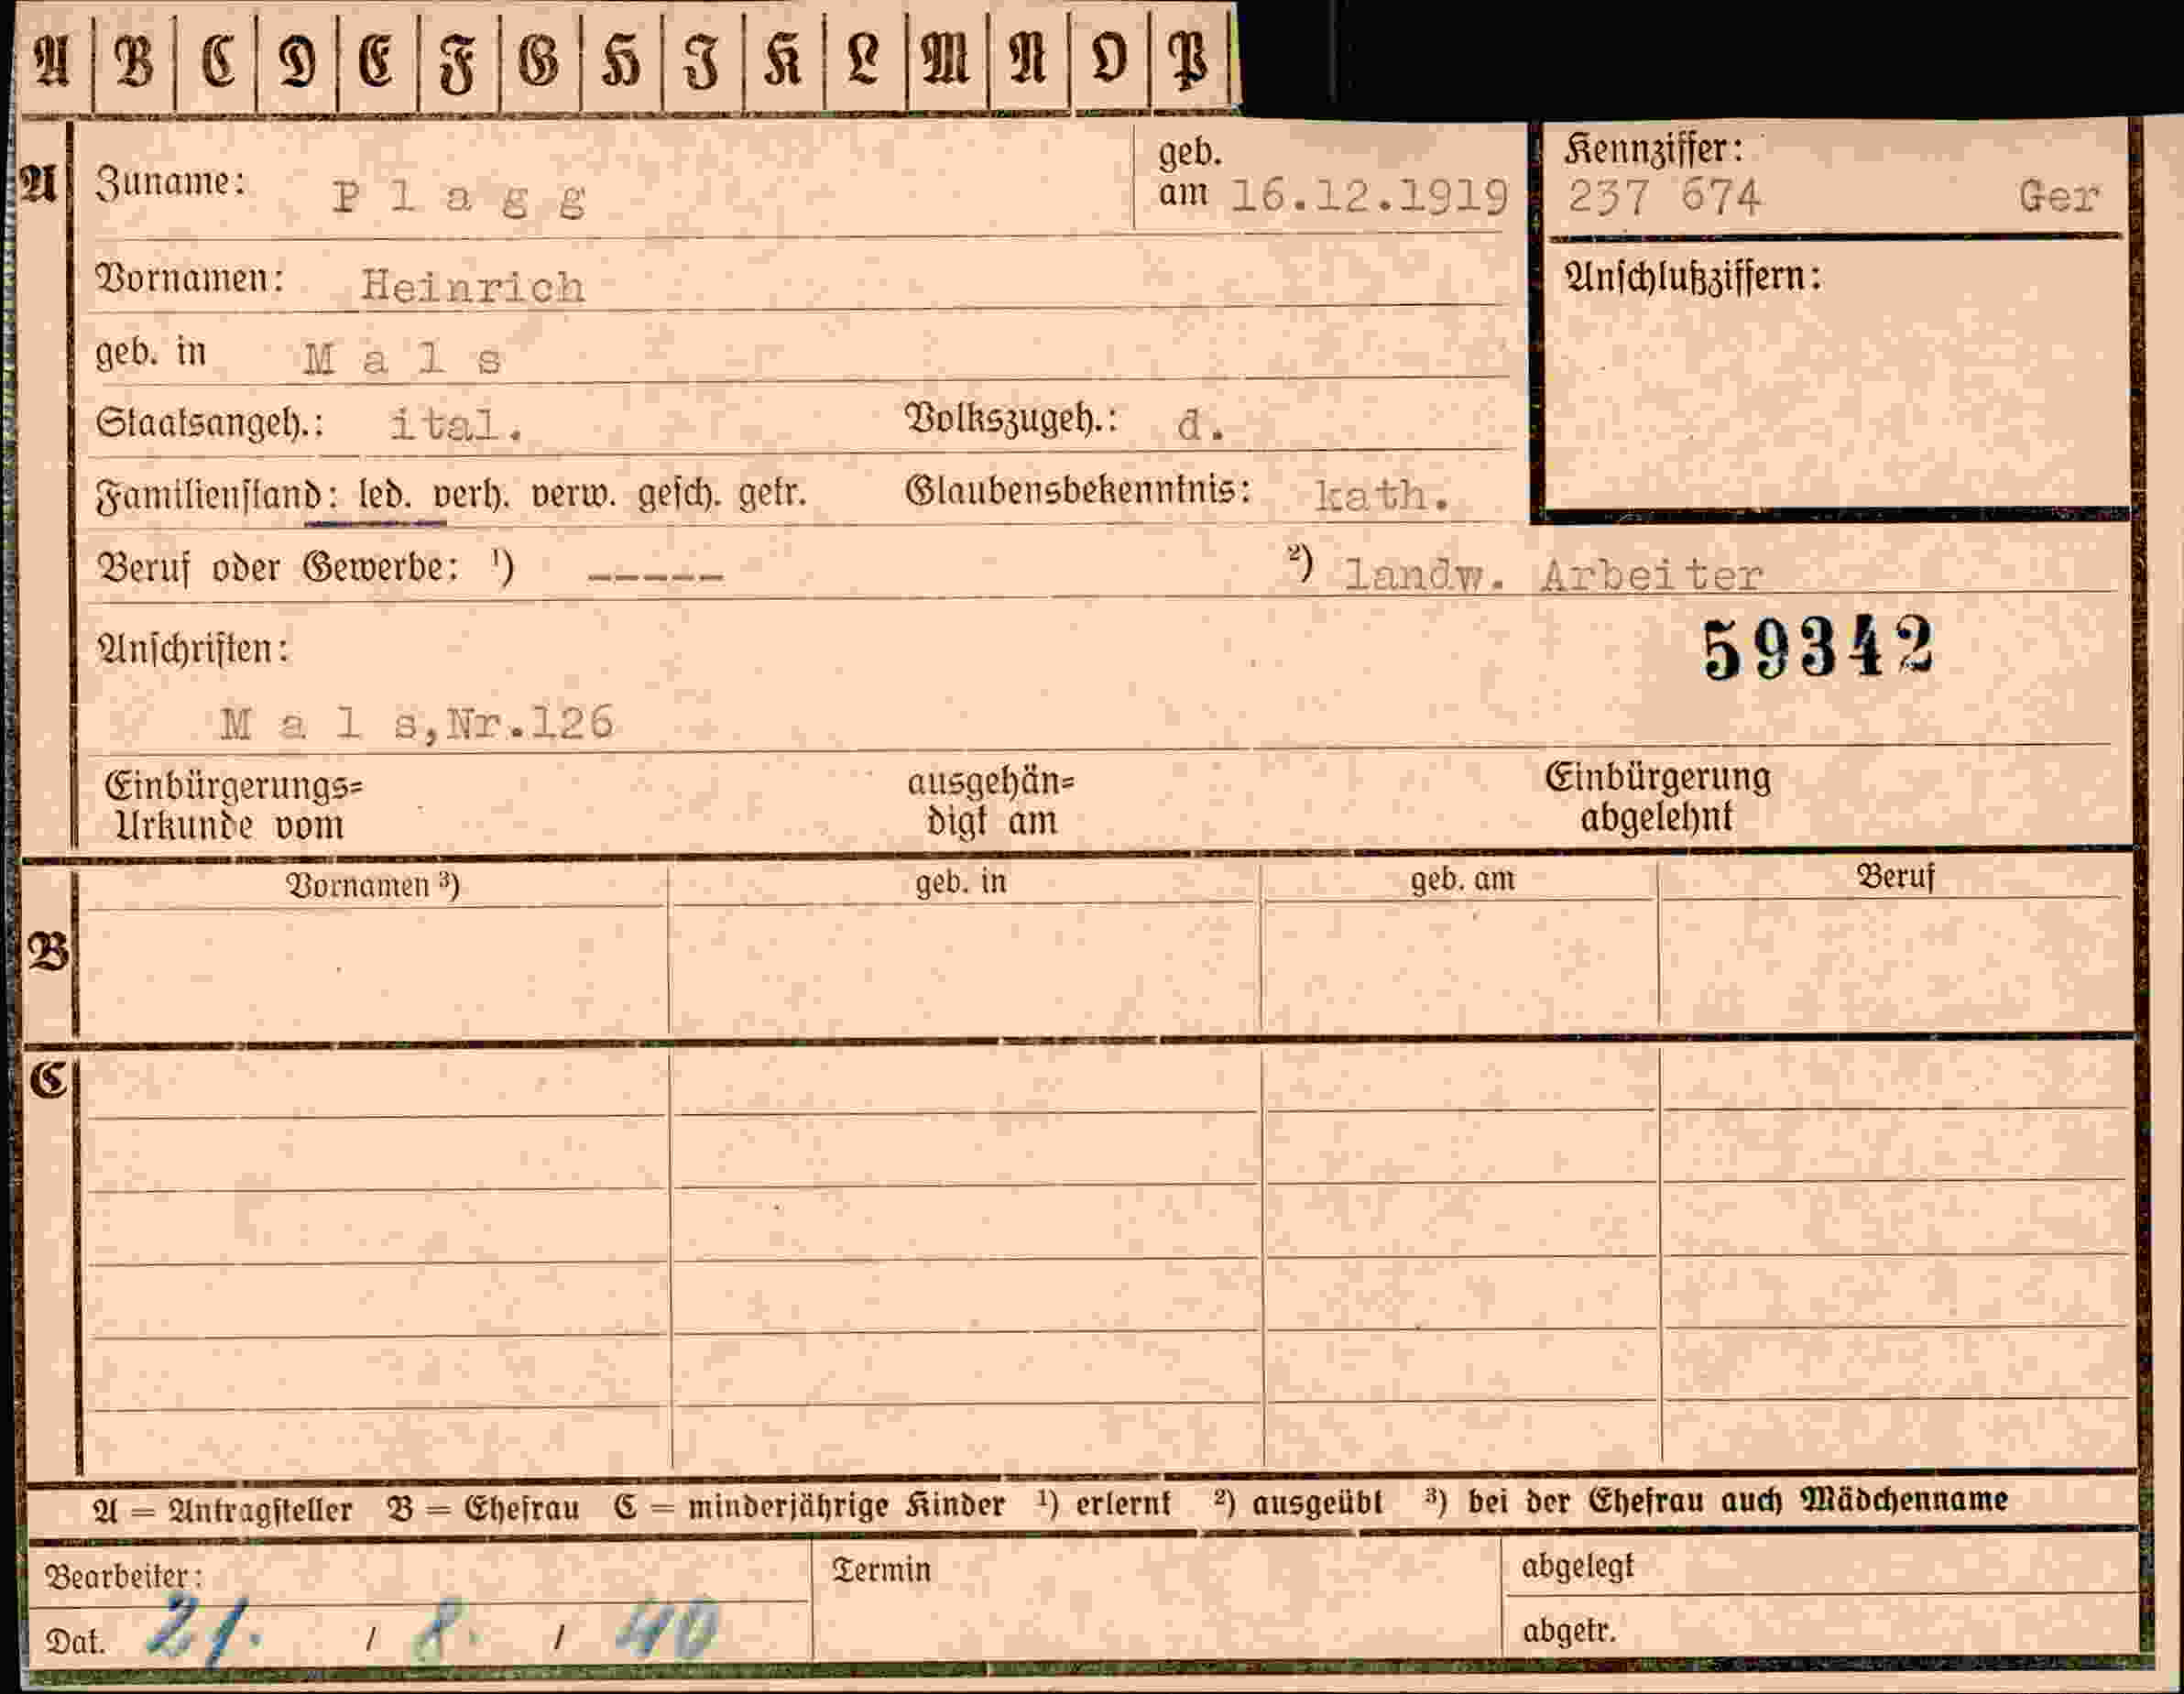 A B C D E F G H I K L M N O P
A Zuname: Plagg geb. am 16.12.1919 Kennziffer: 237 674 Ger
Vornamen: Heinrich Anschlußziffern:
geb. in Mals
Staatsangeh.: ital. Volkszugeh.: d.
Familienstand: led. verh. verw. gesch. getr. Glaubensbekenntnis: kath.
Beruf oder Gewerbe: ¹) ----- ²) landw. Arbeiter
Anschriften: 59342
Mals,Nr.126
Einbürgerungs= ausgehän= Einbürgerung
Urkunde vom digt am abgelehnt
Vornamen ³) geb. in geb. am Beruf
B
C
A = Antragsteller B = Ehefrau C = minderjährige Kinder ¹) erlernt ²) ausgeübt ³) bei der Ehefrau auch Mädchenname
Bearbeiter: Termin abgelegt
Dat. 21. / 8. / 40 abgetr.